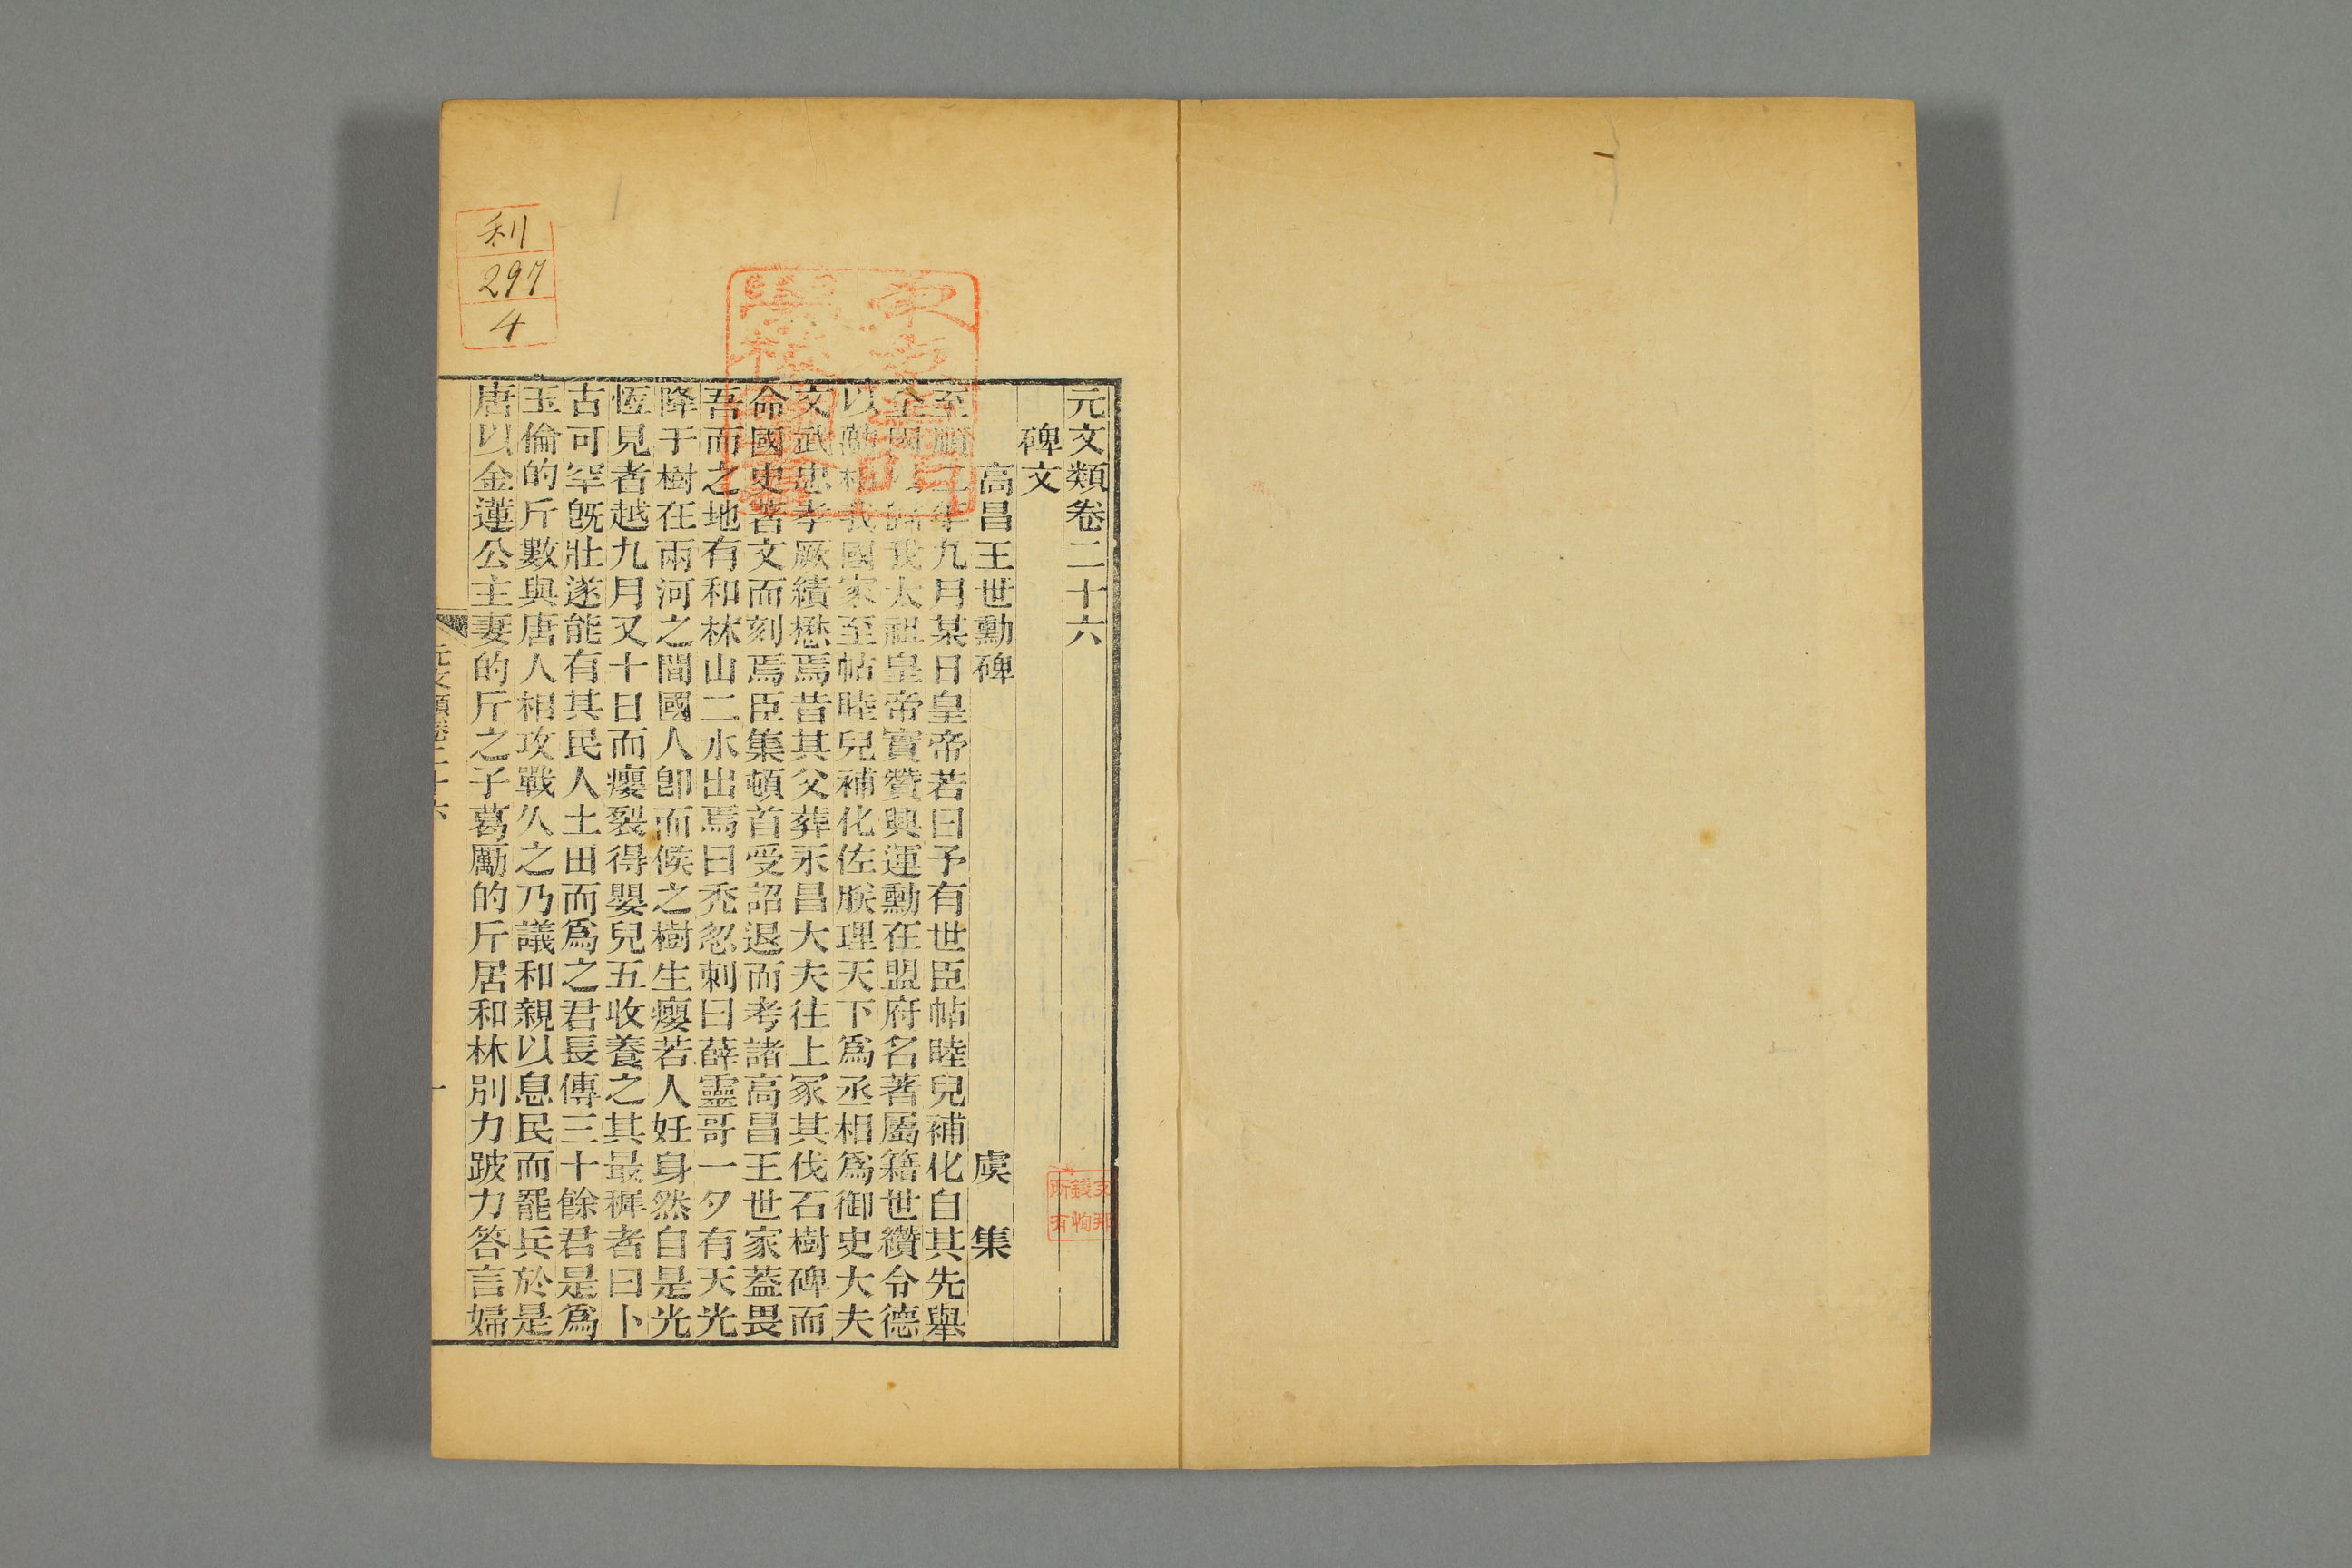 元文類卷二十六
碑文
高昌王世勳碑 虞集
至順二年九月某日皇帝若曰予有世臣帖睦兒補化自其先舉
全國以歸我太祖皇帝實贊興運勳在盟府名著屬籍世纘令德
以敵相我國家至帖睦兒補化佐朕理天下爲丞相爲御史大夫
文武忠孝厥績懋焉昔其父葬永昌大夫往上冢其伐石樹碑而
命國史著文而刻焉臣集頓首受詔退而考諸高昌王世家蓋畏
吾而之地有和林山二水出焉曰禿忽剌曰薛靈哥一夕有天光
降于樹在兩河之間國人卽而候之樹生癭若人妊身然自是光
恆見者越九月又十日而癭裂得嬰兒五收養之其最穉者曰卜
古可罕旣壯遂能有其民人土田而爲之君長傳三十餘君是爲
玉倫的斤數與唐人相攻戰久之乃議和親以息民而罷兵於是
唐以金蓮公主妻的斤之子葛勵的斤居和林別力跛力答言婦
元文類卷二十六
一
利
297
4